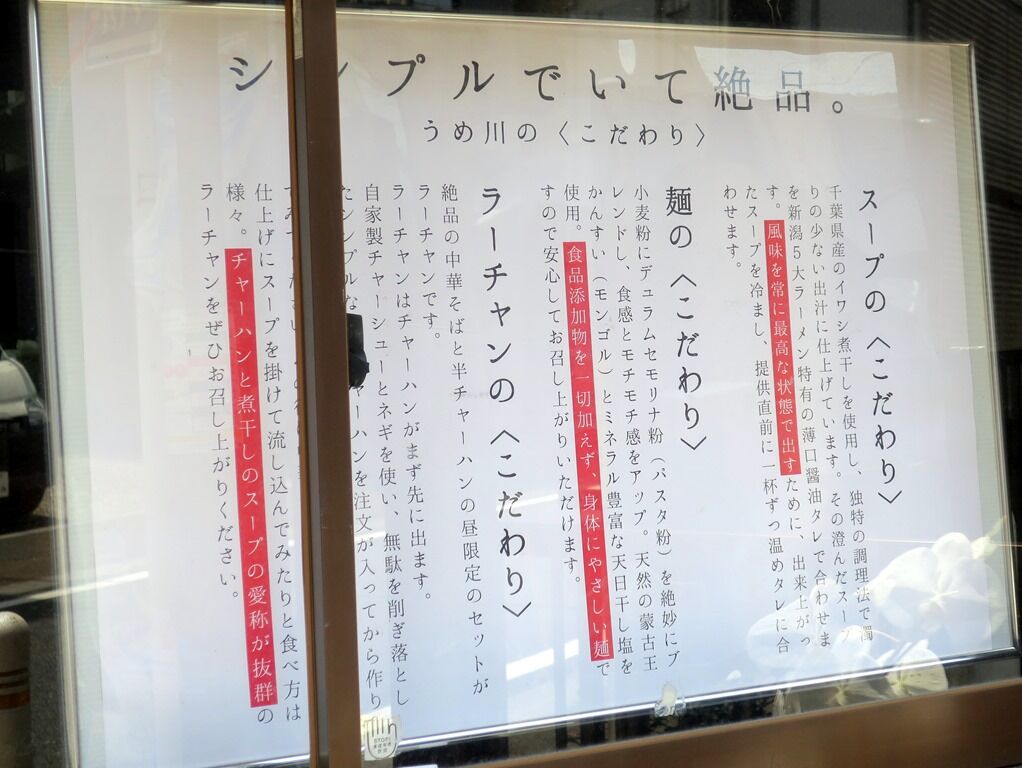 シ プルでいて絶品。
うめ川の〈こだわり〉
スープの〈こだわり〉
千葉県産のイワシ煮干しを使用し、独特の調理法で濁
りの少ない出汁に仕上げています。その澄んだスープ
を新潟5大ラーメン特有の薄口醤油タレで合わせま
す。風味を常に最高な状態で出すために、出来上がっ
たスープを冷まし、提供直前に一杯ずつ温めタレに合
わせます。
麺の〈こだわり〉
小麦粉にデュラムセモリナ粉（パスタ粉）を絶妙にブ
レンドし、食感とモチモチ感をアップ。天然の蒙古王
かんすい（モンゴル）とミネラル豊富な天日干し塩を
使用。食品添加物を一切加えず、身体にやさしい麺で
すので安心してお召し上がりいただけます。
ラーチャンの〈こだわり〉
絶品の中華そばと半チャーハンの昼限定のセットが
ラーチャンです。
ラーチャンはチャーハンがまず先に出ます。
自家製チャーシューとネギを使い、無駄を削ぎ落とし
たシンプルな ャーハンを注文が入ってから作り
仕上げにスープを掛けて流し込んでみたりと食べ方は
様々。チャーハンと煮干しのスープの愛称が抜群の
ラーチャンをぜひお召し上がりください。